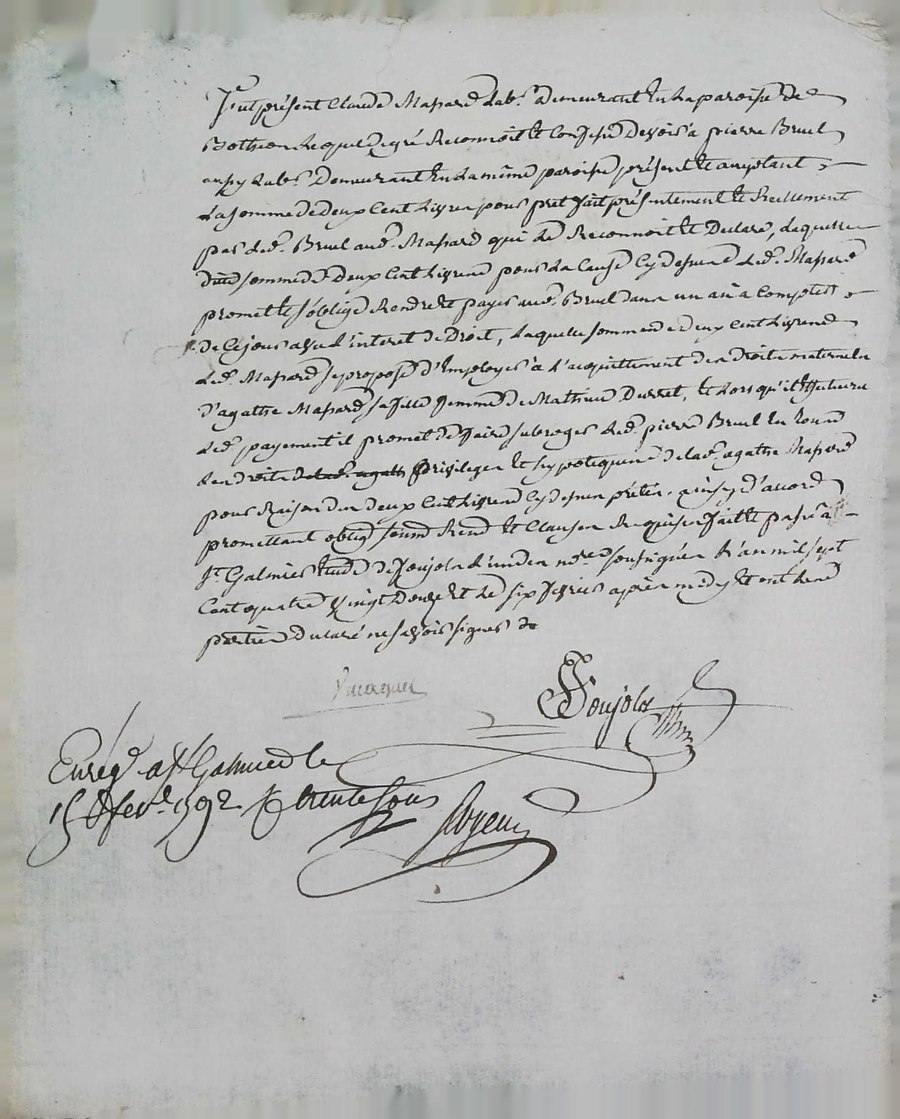 Fut présent Claude Massard Lab.r demeurant En la paroisse de
Bothéon Lequel de gré Reconnoit Et Confesse Devoir à pierre Bruel
aussy Lab.r Demeurant En la même paroisse présent Et acceptant
La somme de deux Cent Livres pour prêt fait présentement Et Reellement
par Led. Bruel aud. Massard qui Le Reconnoit Et Declare, Laquelle
dite somme de Deux Cent Livres pour La Cause Cy dessus Led. Massard
promet Et s'oblige Rendre Et payer aud. Bruel dans un an à Compter
de Ce jour avec L'interet de Droit, Laquelle somme de deux Cent Livres
Led. Massard se propose d'Employer à L'acquittement des Droits maternels
d'agathe Massard sa fille femme de Mathieu Durret, Et Lorsqu'il Effectuera
Led. payement il promet de faire subroger Led. pierre Bruel En tous
Les droits de lad. agathe privileges Et hypoteques de lad. agathe Massard
pour Raison des deux Cent Livres Cy dessus prêtés. ainsy d'accord
promettant oblig.t soum.t Ren.t Et Clauses Requises fait Et passé à
S.t Galmier Etude de Poujol L'un des no.res soussignés L'an mil sept
Cent quatre Vingt Douze Et Le six fevrier après midy Et ont Les
parties declaré ne savoir signer de
Poujol
Enrég. a S.t Galmier le
15 fevr. 1792 R. trente sous